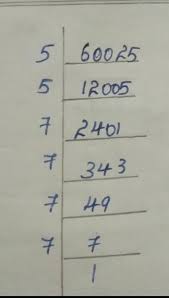 5 60025
5 12005
7 2401
7 343
7 49
7 7
1